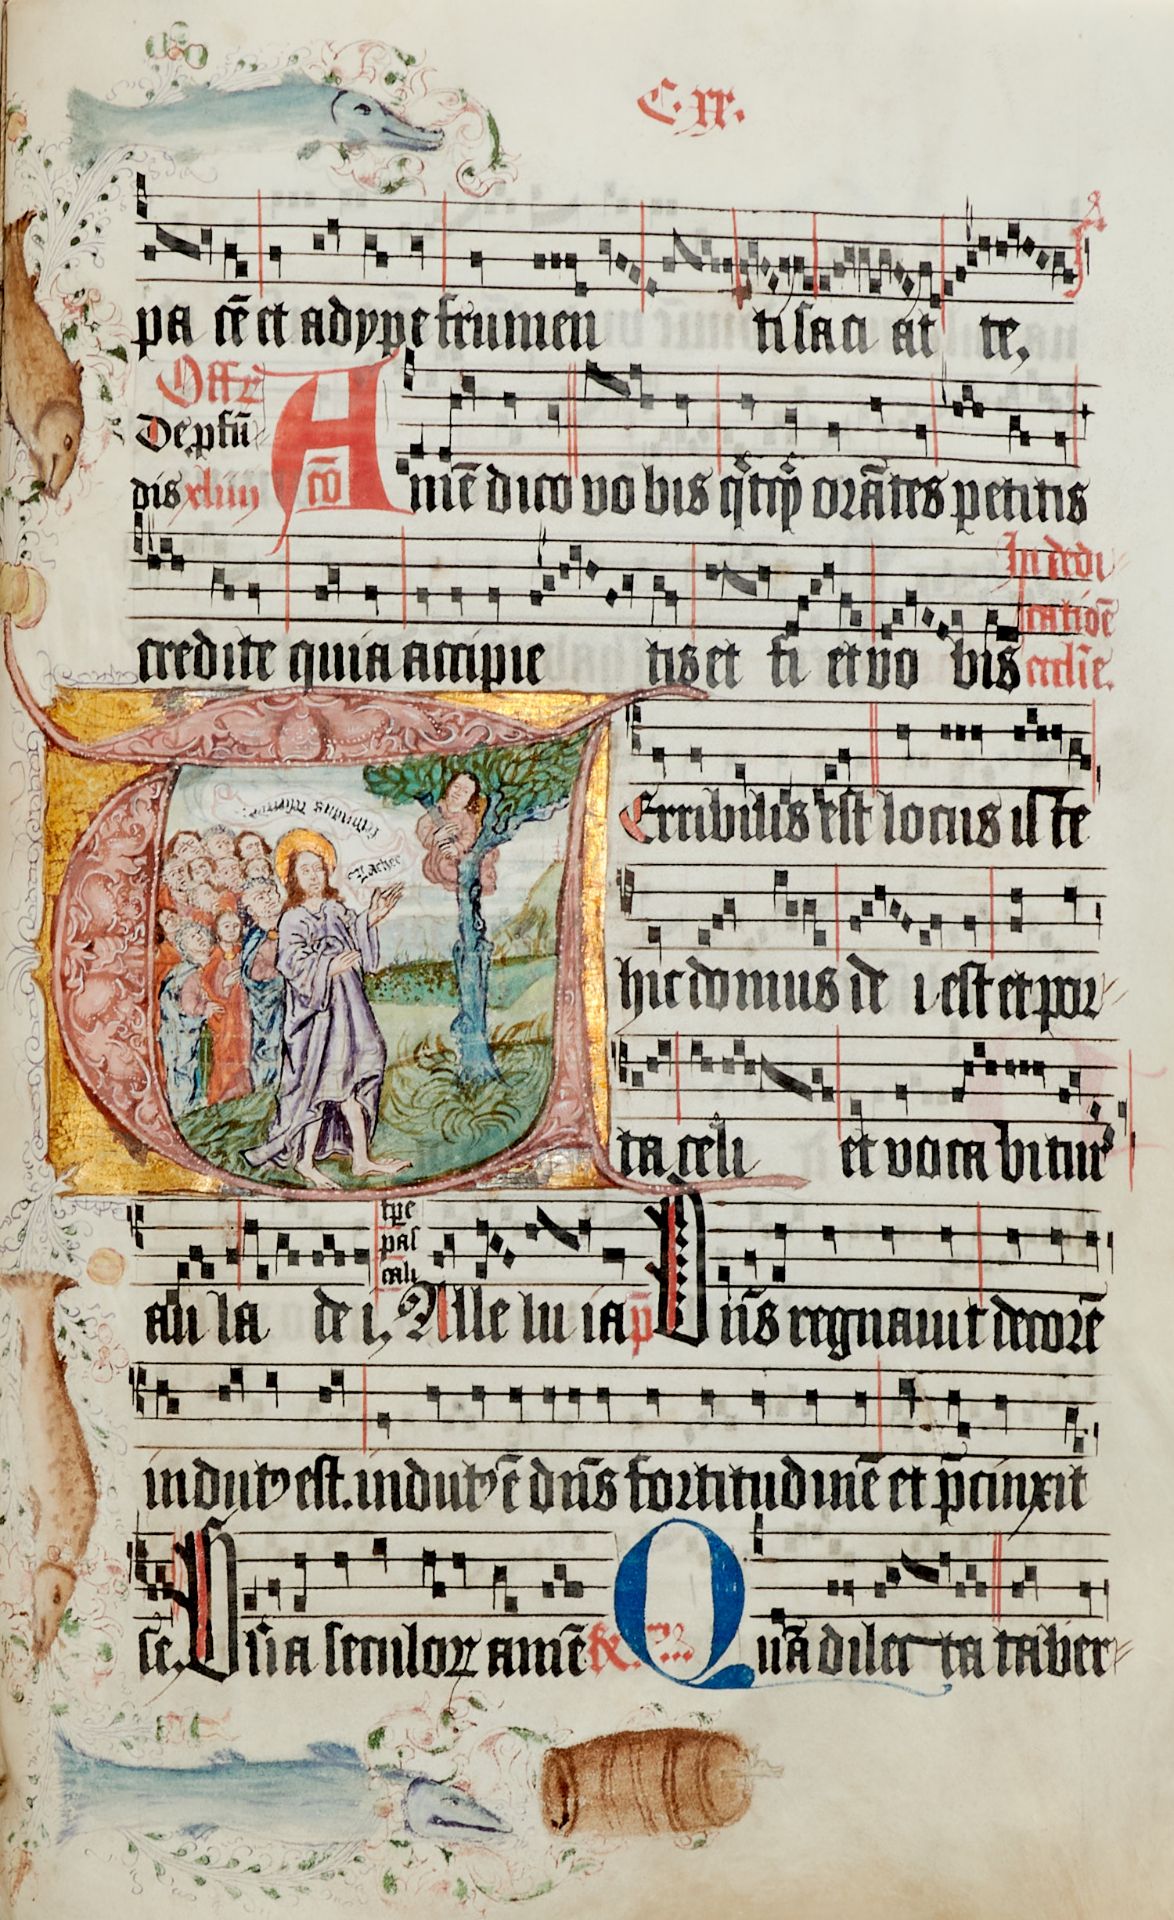 C. xx.
pa cē et adype frumen ti saci at te,
Offr̄
De pfū
dis xliiii
A cō
mē dico vo bis qͥtqͥd orātes petitis
credite quia accipie tis et fi et vo bis
In dedi
catiōe
eccl̄ie.
Zachee
Terribilis est locus is te
hic domus de i est et por
ta celi et voca bitur
au la de i, Alle lu ia p̄ Dn̄s regnauit decorē
tp̄e
pas
cali
indutꝰ est. indutꝰ ē dn̄s fortitudinē et p̄cinxit
se, V s̄ia seculoꝝ amē Quā dilec ta taber